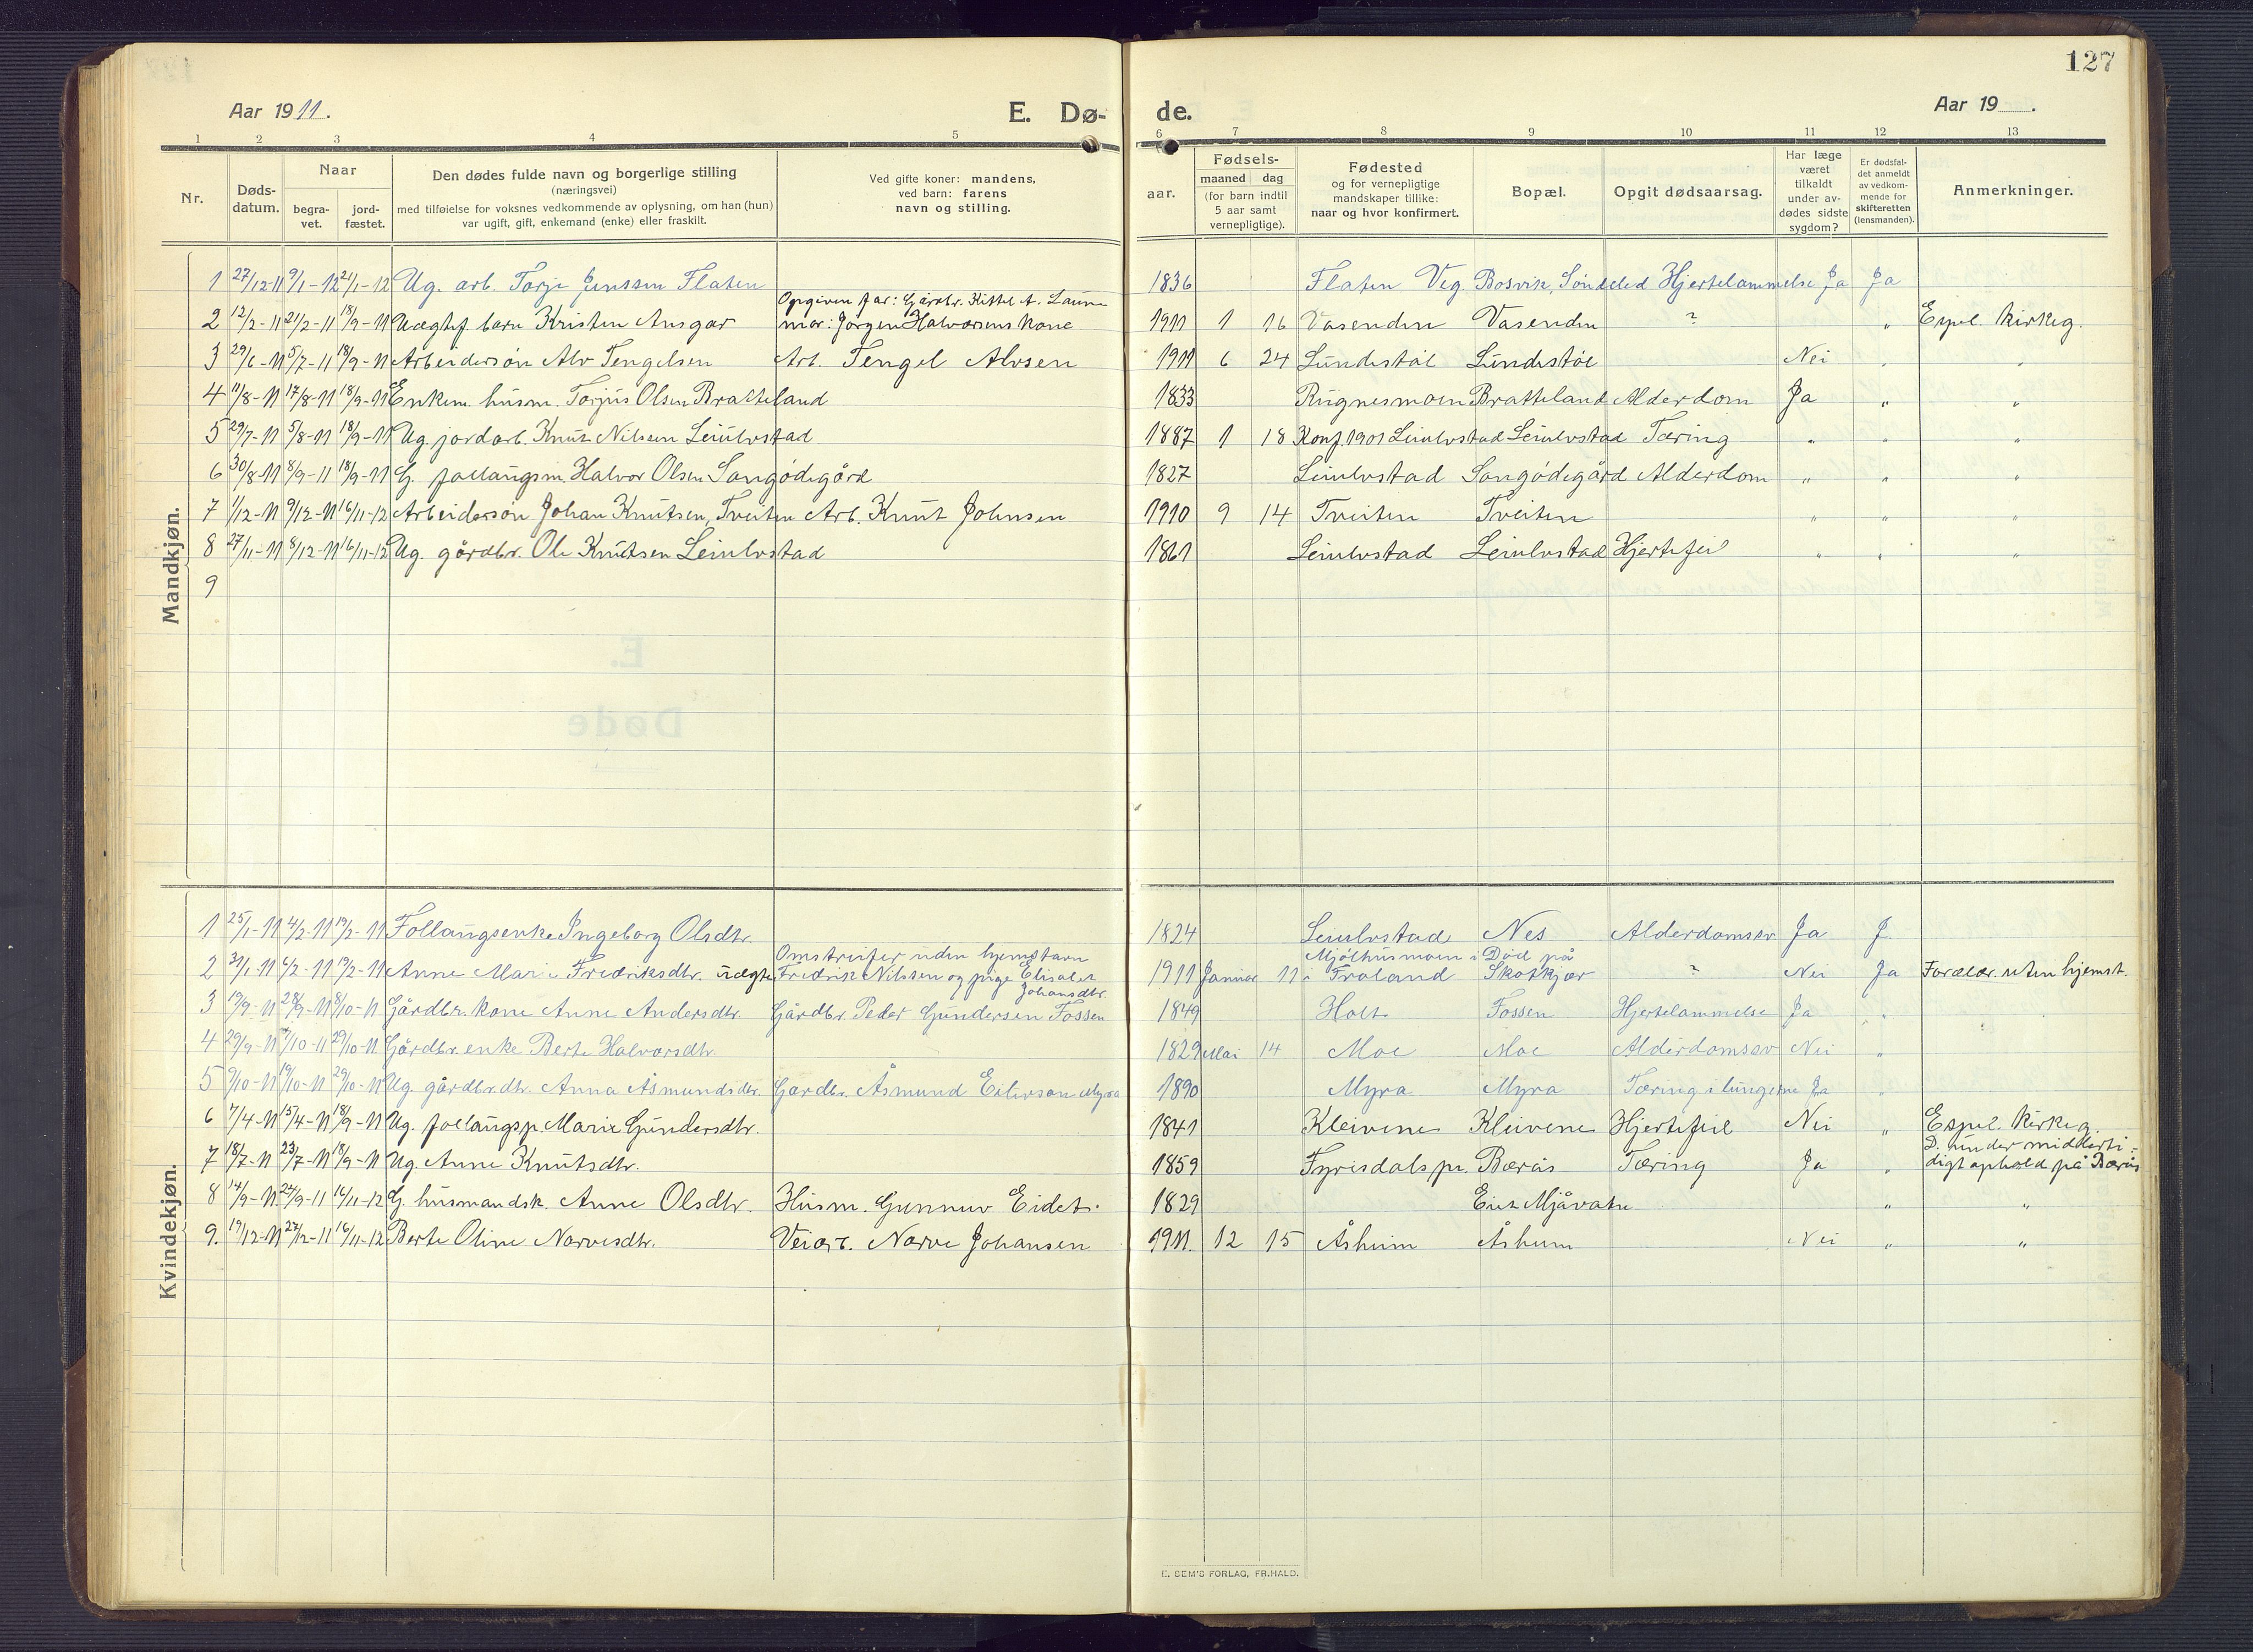 127
Aar 1911.
E. Dø-
de.
Aar 19 .
1 2 3 4 5 6 7 8 9 10 11 12 13
Nr.
Døds-
datum.
Naar
begra-
vet.
jord-
fæstet.
Den dødes fulde navn og borgerlige stilling
(næringsvei)
med tilføielse for voksnes vedkommende av oplysning, om han (hun)
var ugift, gift, enkemand (enke) eller fraskilt.
Ved gifte koner: mandens,
ved barn: farens
navn og stilling.
aar.
Fødsels-
maaned dag
(for barn indtil
5 aar samt
vernepligtige).
Fødested
og for vernepligtige
mandskaper tillike:
naar og hvor konfirmert.
Bopæl.
Opgit dødsaarsag.
Har læge
været
tilkaldt
under av-
dødes sidste
sygdom?
Er dødsfal-
det anmeldt
av vedkom-
mende for
skifteretten
(lensmanden).
Anmerkninger.
Mandkjøn.
1 27/12-11 9/1-12 21/1-12 Ug. arb. Torje Jenssen Flaten 1836 Flaten Veg. Bosvik, Søndeled Hjertelammelse Ja Ja
Opgiven far: Gårdbr. Kittel A.
2 12/2-11 21/2-11 18/9-11 Uægtef. barn Kristen Ansgar mor: Jørgen Halvorsens kone 1911 1 16 Vasenden Vasenden ? „ Espel. kirkeg.
3 29/6-11 5/7-11 18/9-11 Arbeidersøn Alv Tengelsen Arb. Tengel Alvsen 1911 6 24 Lundestøl Lundestøl Nei „ „
4 11/8-11 17/8-11 18/9-11 Enkem. husm. Torjus Olsen Bratteland 1833 Rugnesmoen Bratteland Alderdom Ja „ „
5 29/7-11 5/8-11 18/9-11 Ug. jordarb. Knut Nilsen Leiulvstad 1887 1 18 Konf. 1901 Leiulvstad Leiulvstad Tæring „ „ „
6 30/8-11 8/9-11 18/9-11 G. follaugsm. Halvor Olsen Songødegård 1827 Leiulvstad Songødegård Alderdom „ „ „
7 1/12-11 9/12-11 16/11-12 Arbeidersøn Johan Knutsen, Tveiten Arb. Knut Johnsen 1910 9 14 Tveiten Tveiten „ „ „
8 27/11-11 8/12-11 16/11-12 Ug. gårdbr. Ole Knutsen Leiulvstad 1861 Leiulvstad Leiulvstad Hjertefeil „ „ „
9
Kvindekjøn.
1 25/1-11 4/2-11 19/2-11 Follaugsenke Ingeborg Olsdtr. 1824 Leiulvstad Nes Alderdomssv Ja J.
Omstreifer uden hjemstavn Mjølhusmoen i Død på
2 31/1-11 6/2-11 19/2-11 Anne Marie Fredriksdtr. uægte Fredrik Nilssen og pige Elisabet 1911 Januar 11 Froland Skotkjær ? Nei Ja Forældr. uten hjemst.
Johansdtr.
3 19/9-11 28/9-11 8/10-11 Gårdbr. kone Anne Andersdtr. Gårdbr. Peder Gundersen Fossen 1849 Holt Fossen Hjertelammelse Ja „
4 29/9-11 /10-11 29/10-11 Gårdbr. enke Berte Halvorsdtr. 1829 Mai 14 Moe Moe Alderdomssv Nei „
5 9/10-11 19/10-11 29/10-11 Ug. gårdbr.dtr. Anna Åsmundsdtr. Gårdbr. Åsmund Eilivson Myra 1890 Myra Myra Tæring i lungerne Ja „
6 7/4-11 15/4-11 18/9-11 Ug. follaugsp. Marie Gundersdtr. 1841 Kleivene Kleivene Hjertefeil Nei „ Espel. kirkeg.
D. under midlerti-
7 18/7-11 23/7-11 18/9-11 Ug. Anne Knutsdtr. 1859 Fyrisdals pr. Børås Tæring Ja „ digt ophold på Børås
8 14/9-11 24/9-11 16/11-12 G. husmandsk. Anne Olsdtr. Husm. Gunnuv Eidet. 1829 Eiet Mjåvatn „ „
9. 19/12-11 27/12-11 16/11-12 Berte Oline Narvesdtr. Veiarb. Narve Johansen 1911. 12 15 Åsheim Åsheim Nei „ „
E. SEM'S FORLAG, FR.HALD.